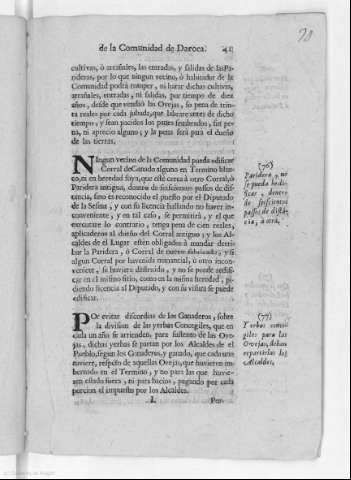 de la Comunidad de Daroca. 41
cultivas, ò arrañales, las entradas, y salidas de las Pa-
rideras, por lo que ningun vecino, ò habitador de la
Comunidad podrà romper, ni harar dichas cultivas,
arrañales, entradas, ni salidas, por tiempo de diez
años, desde que vendrà las Ovejas, so pena de trin-
ta reales por cada jubada, que labrare antes de dicho
tiempo, y sean pacidos los panes sembrados, sin pe-
na, ni aprecio alguno; y la pena serà para el dueño
de las tierras.
NIngun vecino de la Comunidad pueda edificar
Corral de Ganado alguno en Termino blan-
co, ni en heredad suya, que estè cerca à otro Corral, ò
Paridera antigua, dentro de seiscientos passos de dis-
tancia, sino es reconocido el puesto por el Diputado
de la Sesma, y con su licencia hallando no haver in-
conveniente, y en tal caso, se permitirà, y el que
executare lo contrario, tenga pena de cien reales,
aplicaderos al dueño del Corral antiguo; y los Al-
caldes del Lugar estèn obligados à mandar derri-
bar la Paridera, ò Corral de nuevo fabricada; y si
algun Corral por haversido manancial, ò otro incon-
veniente, se huviere destruido, y no se puede redifi-
car en el mismo sitio, como en la misma heredad, pi-
diendo licencia al Diputado, y con su visura se puede
edificar.
(76)
Parideras, no
se pueda hedi-
ficar, dentro
de seiscientos
passos de distã-
cia, à otra.
POr evitar discordias de los Ganaderos, sobre
la division de las yerbas Concegiles, que en
cada un año se arriendan, para sustento de las Ove-
jas, dichas yerbas se partan por los Alcaldes del
Pueblo, segun los Ganaderos, y ganado, que cada uno
tuviere, respeto de aquellas Ovejas, que huvieren in-
bernado en el Termino, y no para las que huvie-
ren estado fuera, ni para bacios, pagando por cada
porcion el impuesto por los Alcaldes.
(77)
Yerbas conce-
giles para las
Ovejas, deban
repartirlas los
Alcaldes.
L Por